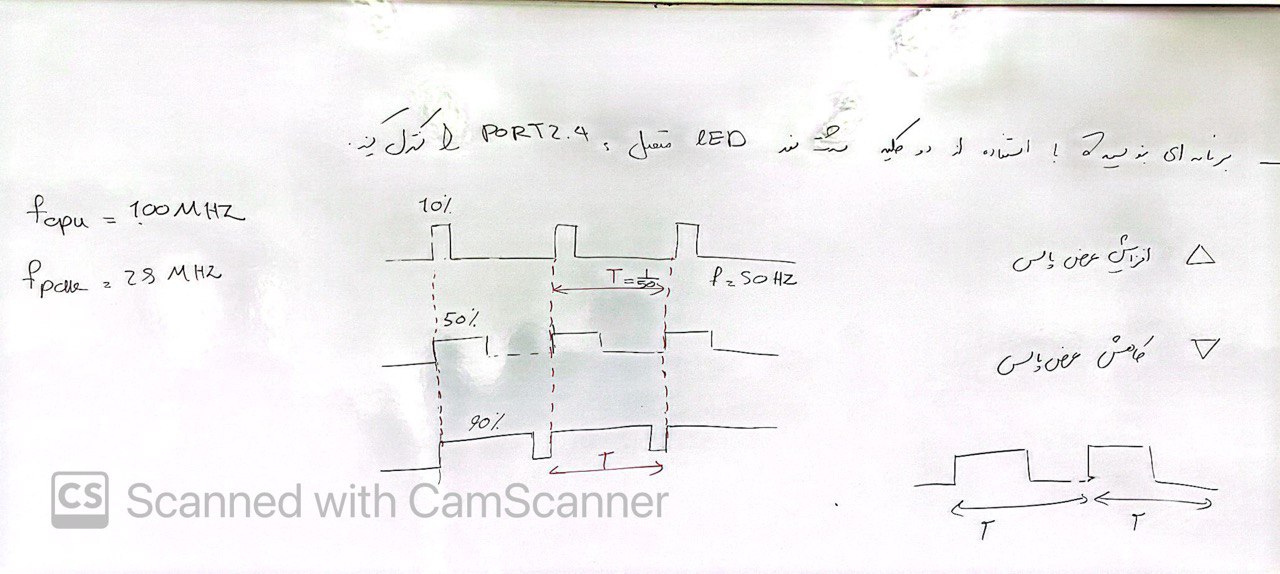 برنامه ای بنویسید که با استفاده از دو کلید شدت نور LED متصل به PORT2.4 را کنترل کنید.
fcpu = 100 MHZ
fpclk = 25 MHZ
10%
T = 1/50
f = 50 HZ
50%
90%
T
△ افزایش عرض پالس
▽ کاهش عرض پالس
T T
CS Scanned with CamScanner